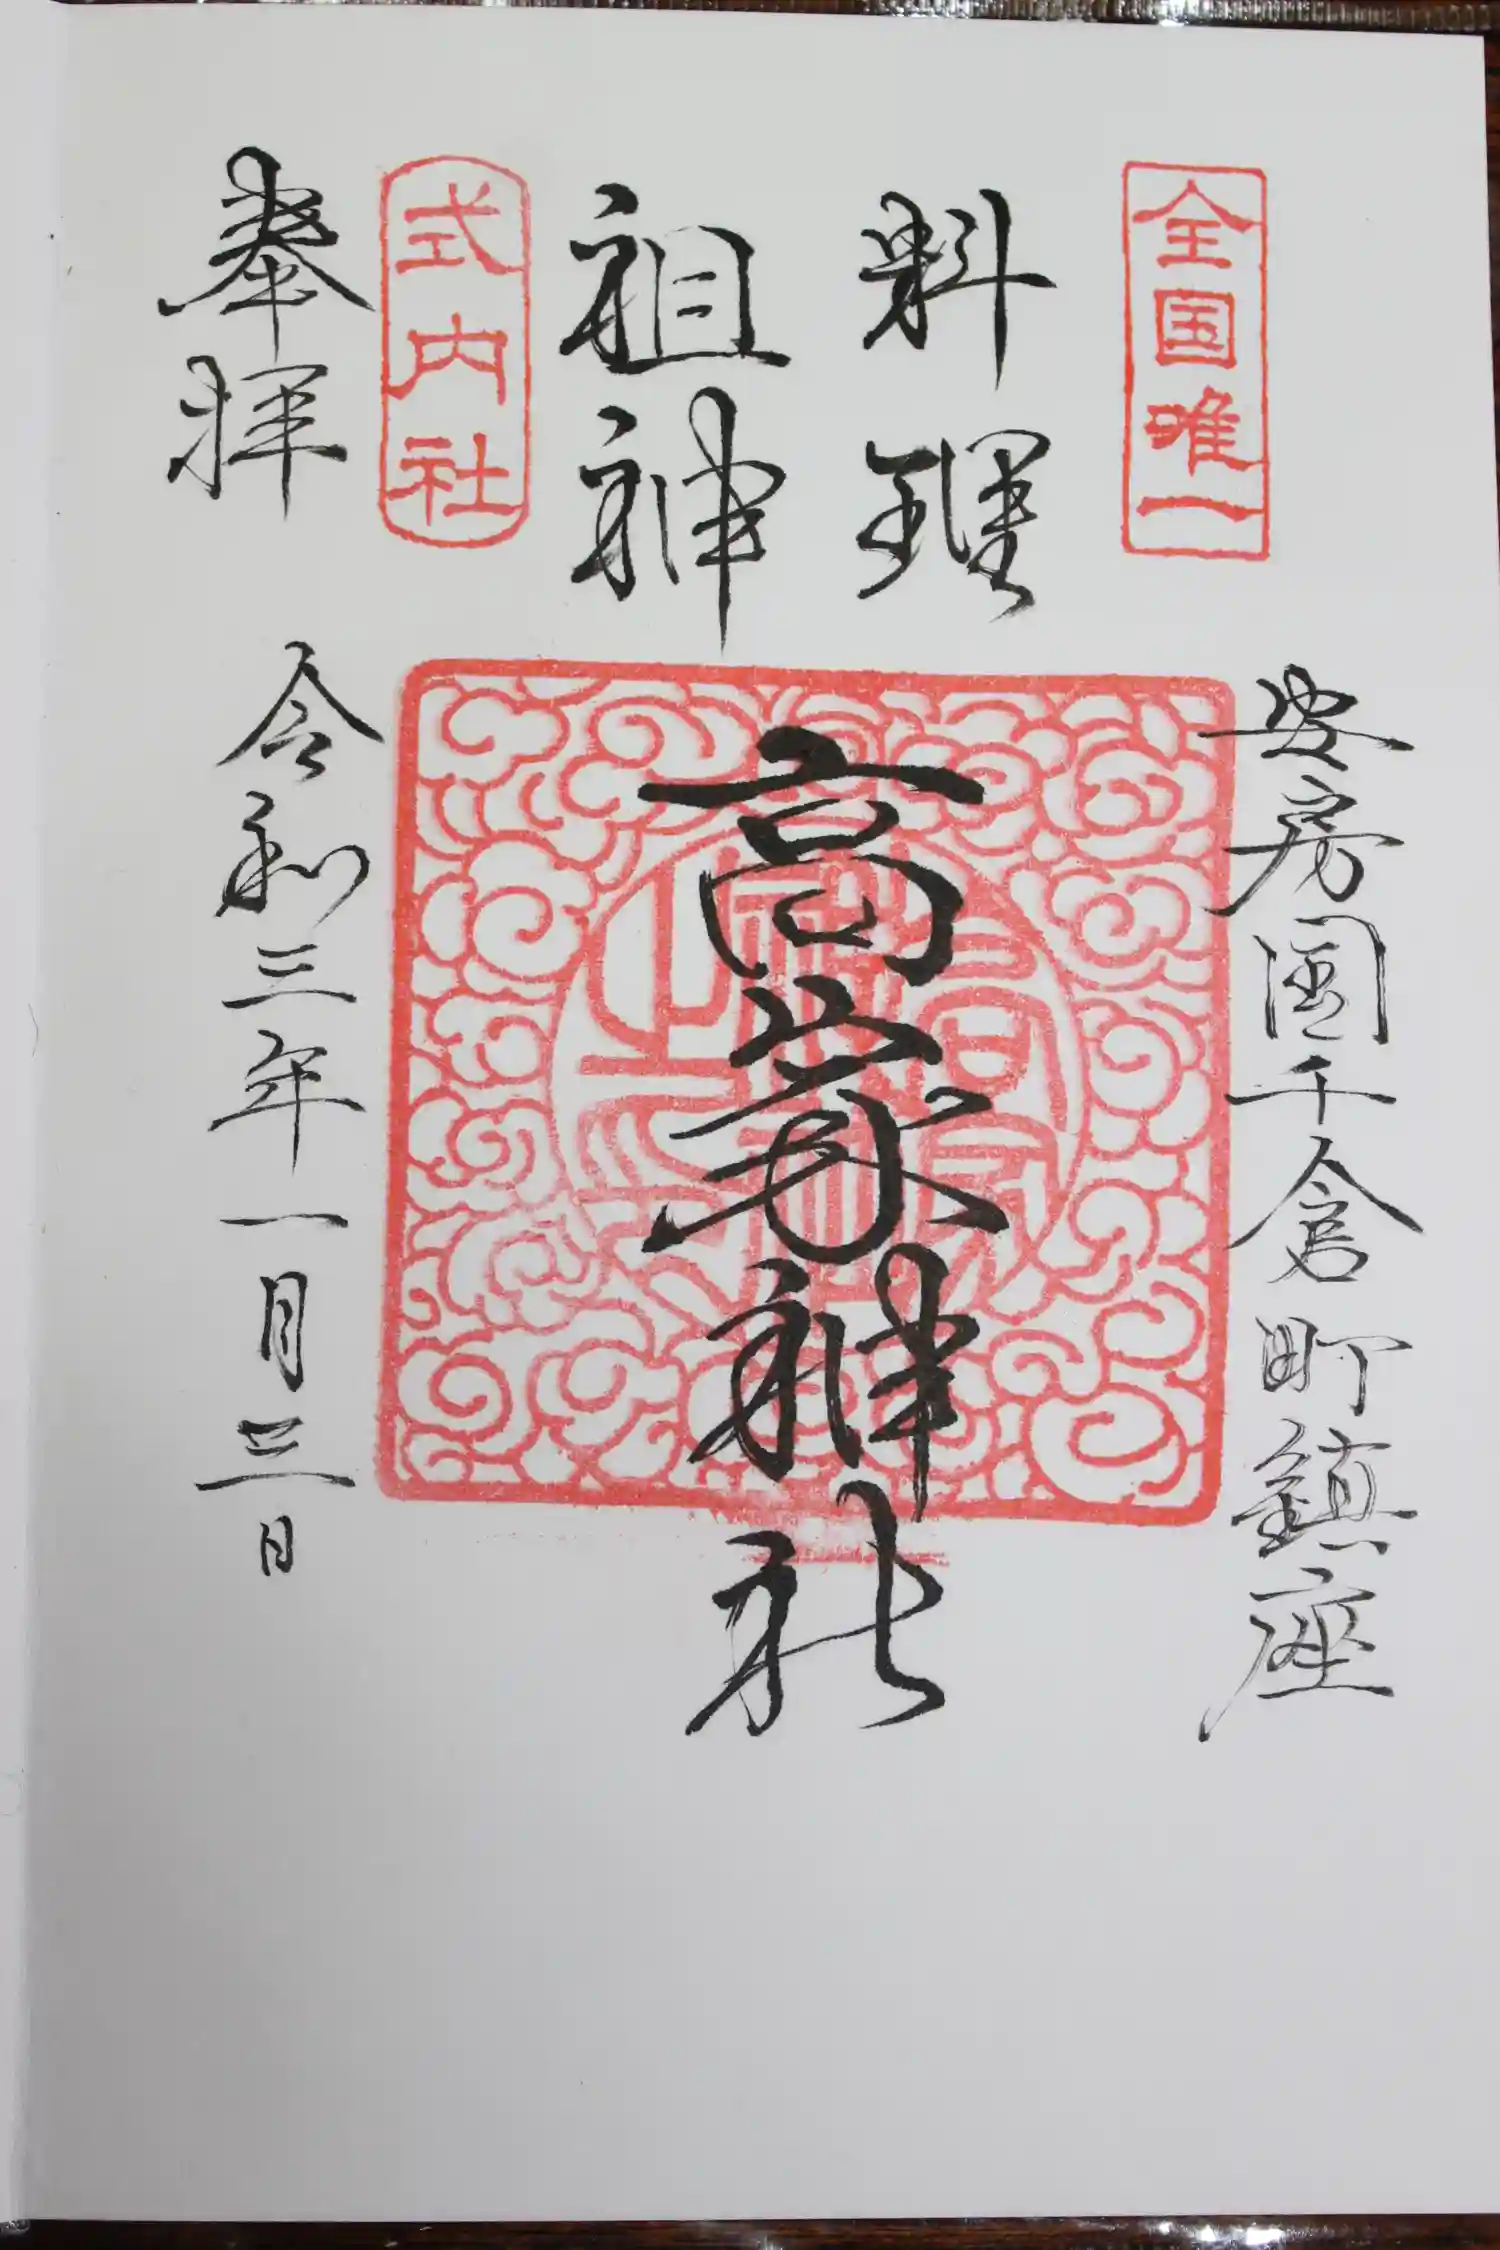 全国唯一
安房國千倉町鎮座
料理
祖神
高家神社
式内社
奉拝
令和三年一月三日